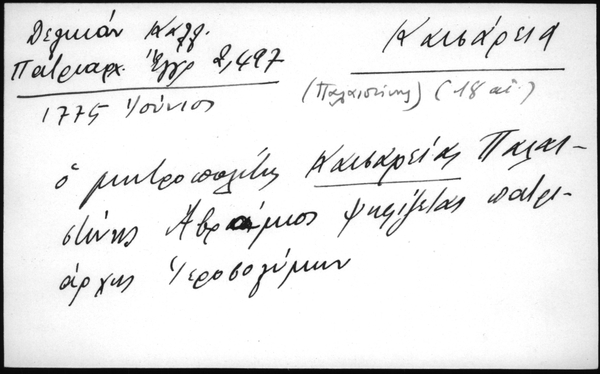 Δελικάν Καλλ.
Πατριαρχ. Έγγρ 2,497
1775 Ιούνιος
Καισάρεια
(Παλαιστίνης) (18 αἰ.)
ὁ μητροπολίτης Καισαρείας Παλαι-
στίνης Ἀβράμιος ψηφίζεται πατρι-
άρχης Ἱεροσολύμων